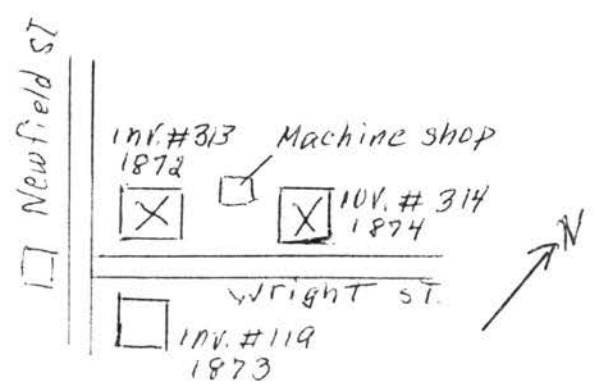 Newfield ST
Inv. #313
1872
Machine shop
Inv. # 314
1874
Wright ST.
Inv. #119
1873
N